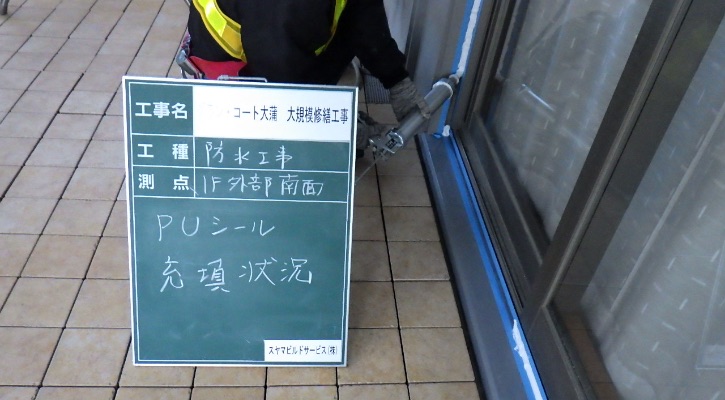 工事名 コート大蒲 大規模修繕工事
工種 防水工事
測点 1F外部南面
PUシール
充填状況
スヤマビルドサービス(株)